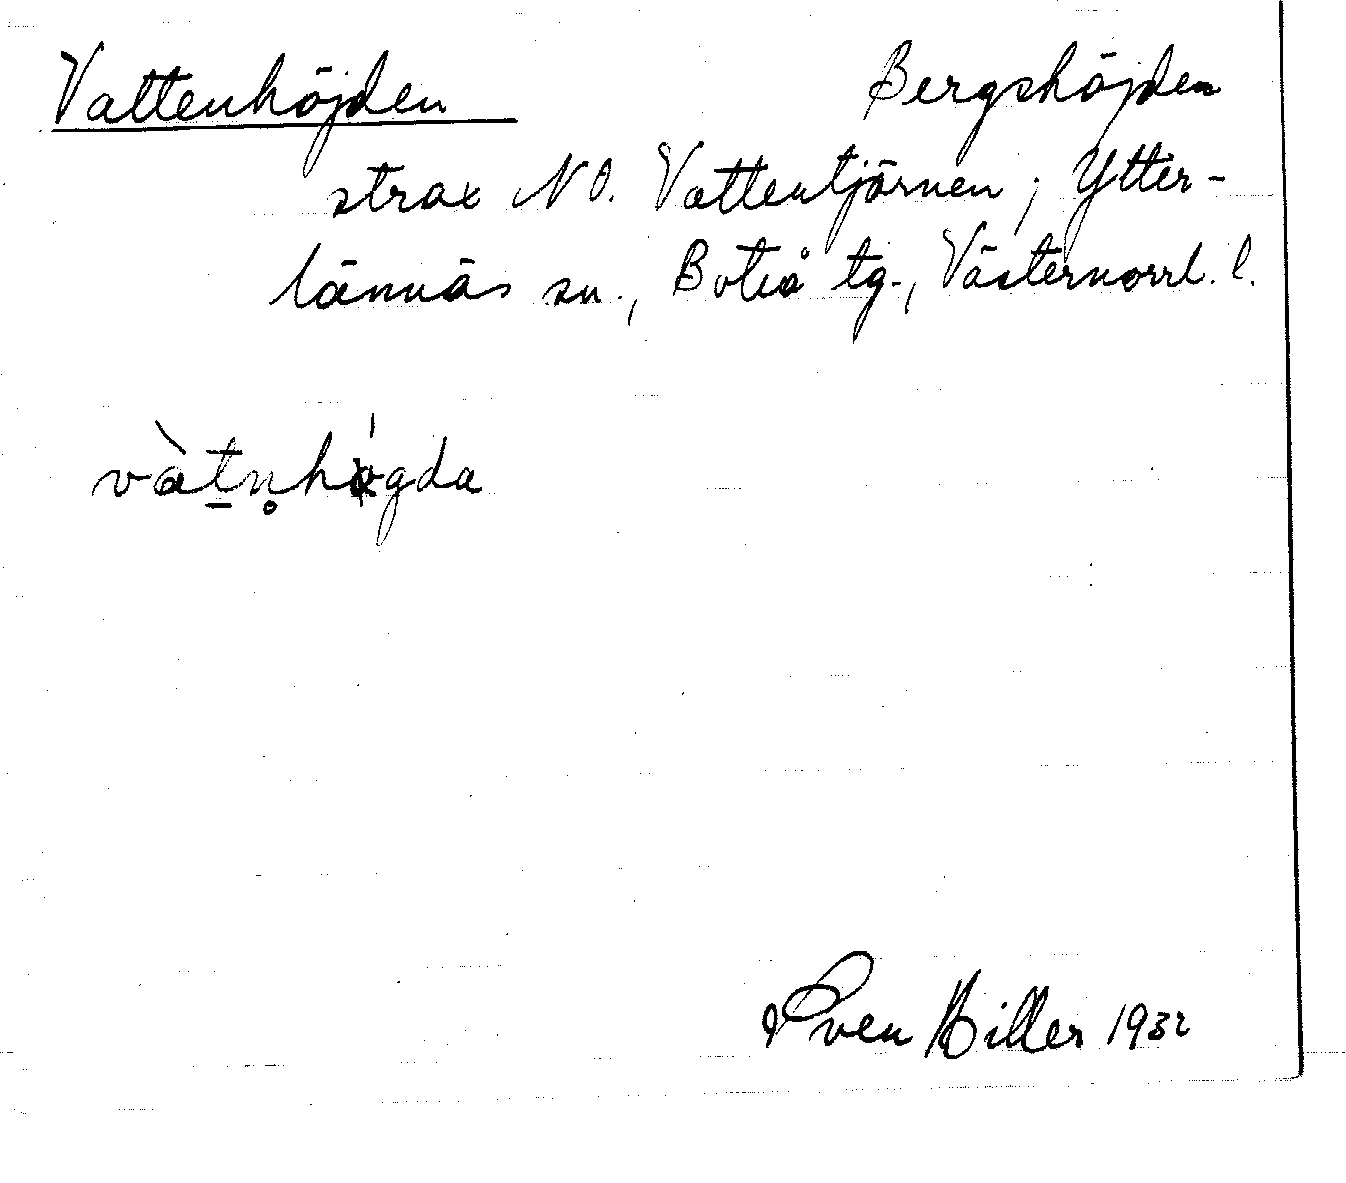 Vattenhöjden Bergshöjden
strax NO. Vattentjärnen; Ytter-
lännäs sn., Boteå tg., Västernorrl. l.
vàt̲n̥hǿgda
Sven Hiller 1932